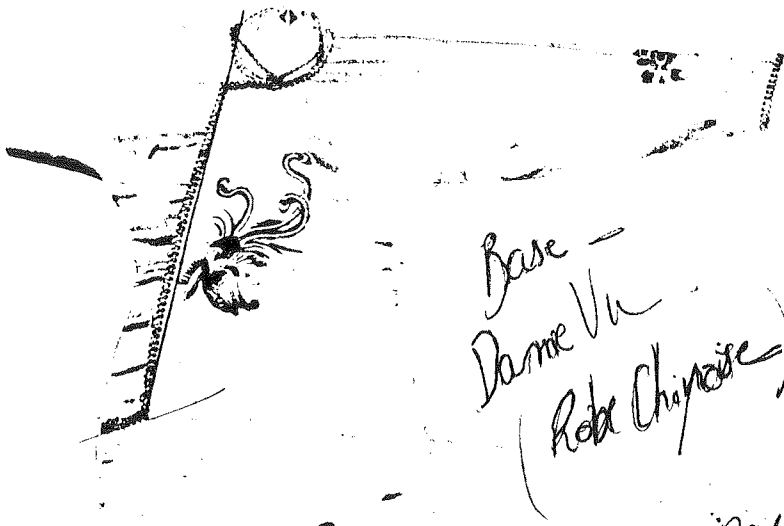 Base -
Dame Vu
(Robe Chinoise)